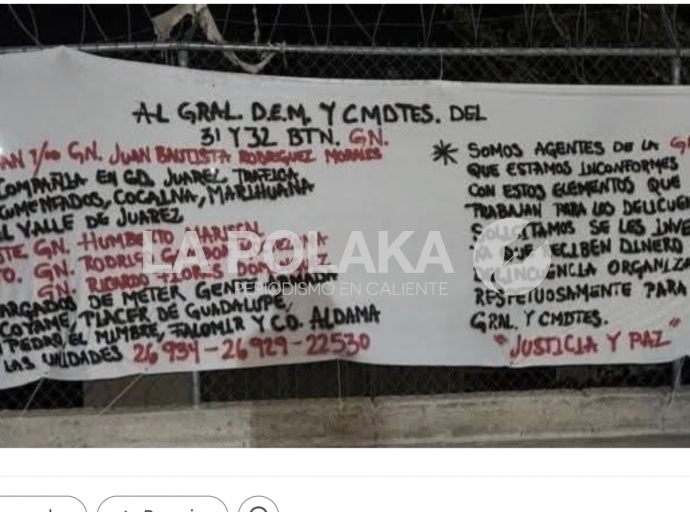 AL GRAL. D.E.M. Y CMDTES. DEL
31 Y 32 BTN. GN.
GN. JUAN BAUTISTA RODRIGUEZ MORALES
COMPAÑIA EN CD. JUAREZ TRAFICA
COCAINA, MARIHUANA
L VALLE DE JUAREZ
GN. HUMBERTO MARISCAL
GN. RODRIGO
GN. RICARDO FLORES
ARGADOS DE METER GENTE ARMADA
COYAME, PLACER DE GUADALUPE,
PEDRO, EL MIMBRE, FALOMIR Y CD. ALDAMA
LAS UNIDADES 26934-26929-22530
* SOMOS AGENTES DE LA G
QUE ESTAMOS INCONFORMES
CON ESTOS ELEMENTOS QUE
TRABAJAN PARA LOS DELICUE
SOLICITAMOS SE LES INVE
YA QUE RECIBEN DINERO
DELINCUENCIA ORGANIZA
RESPETUOSAMENTE PARA
GRAL. Y CMDTES.
"JUSTICIA Y PAZ"
LA POLAKA
PERIODISMO EN CALIENTE